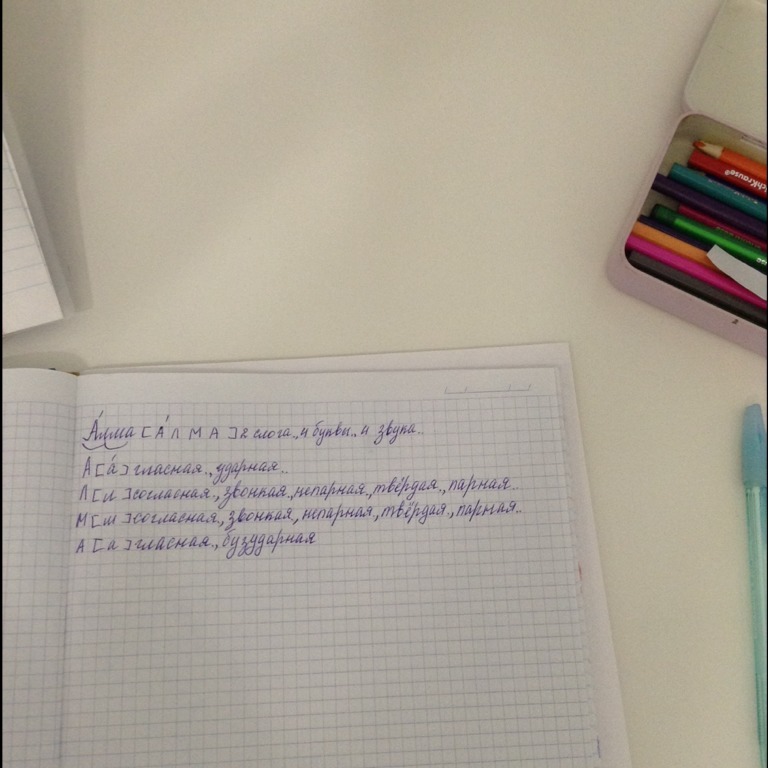 А́лма [А́ Л М А] 2 слога., 4 буквы., 4 звука..
А [а́] гласная., ударная..
Л [л] согласная., звонкая, непарная, твёрдая., парная..
М [м] согласная., звонкая, непарная, твёрдая., парная..
А [а] гласная., бузударная